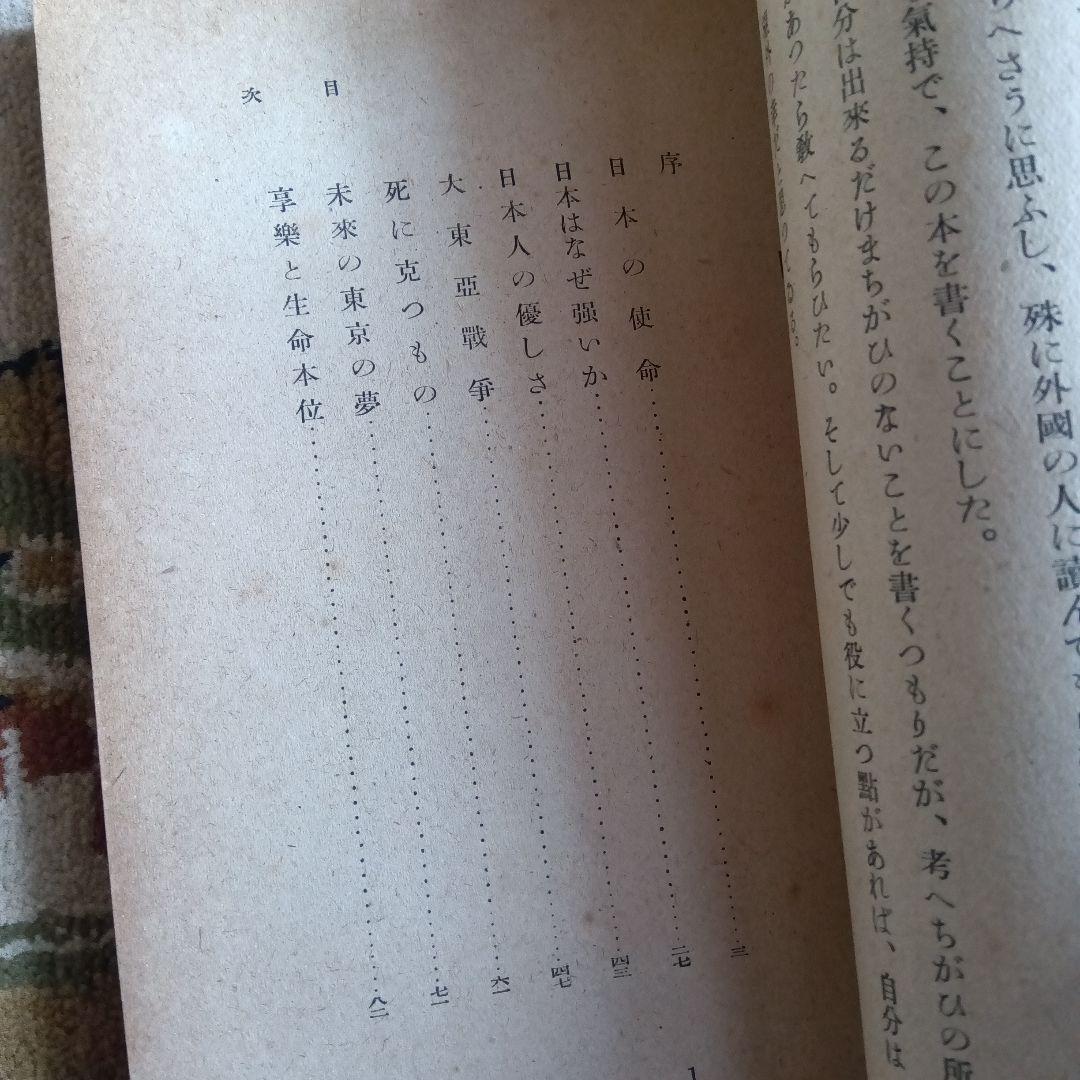 さうに思ふし、殊に外國の人に讀んで
氣持で、この本を書くことにした。
分は出來るだけまちがひのないことを書くつもりだが、考へちがひの所
あつたら敎へてもらひたい。そして少しでも役に立つ點があれば、自分は
目次
序
日本の使命……三
日本はなぜ强いか……二七
日本人の優しさ……四三
大東亞戰爭……四七
死に克つもの……六一
未來の東京の夢……七一
享樂と生命本位……八二
1